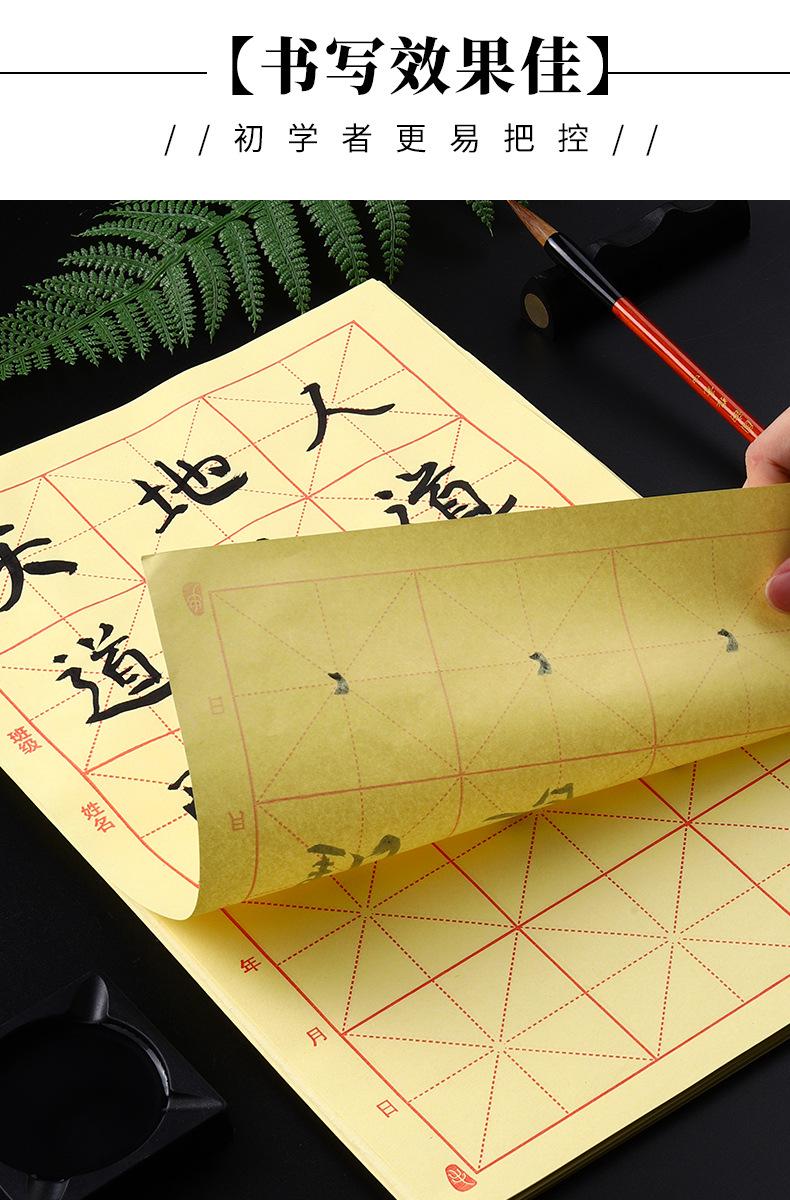 【书写效果佳】
//初学者更易把控//
天地人
道道
班级
姓名
年
月
日
日
月